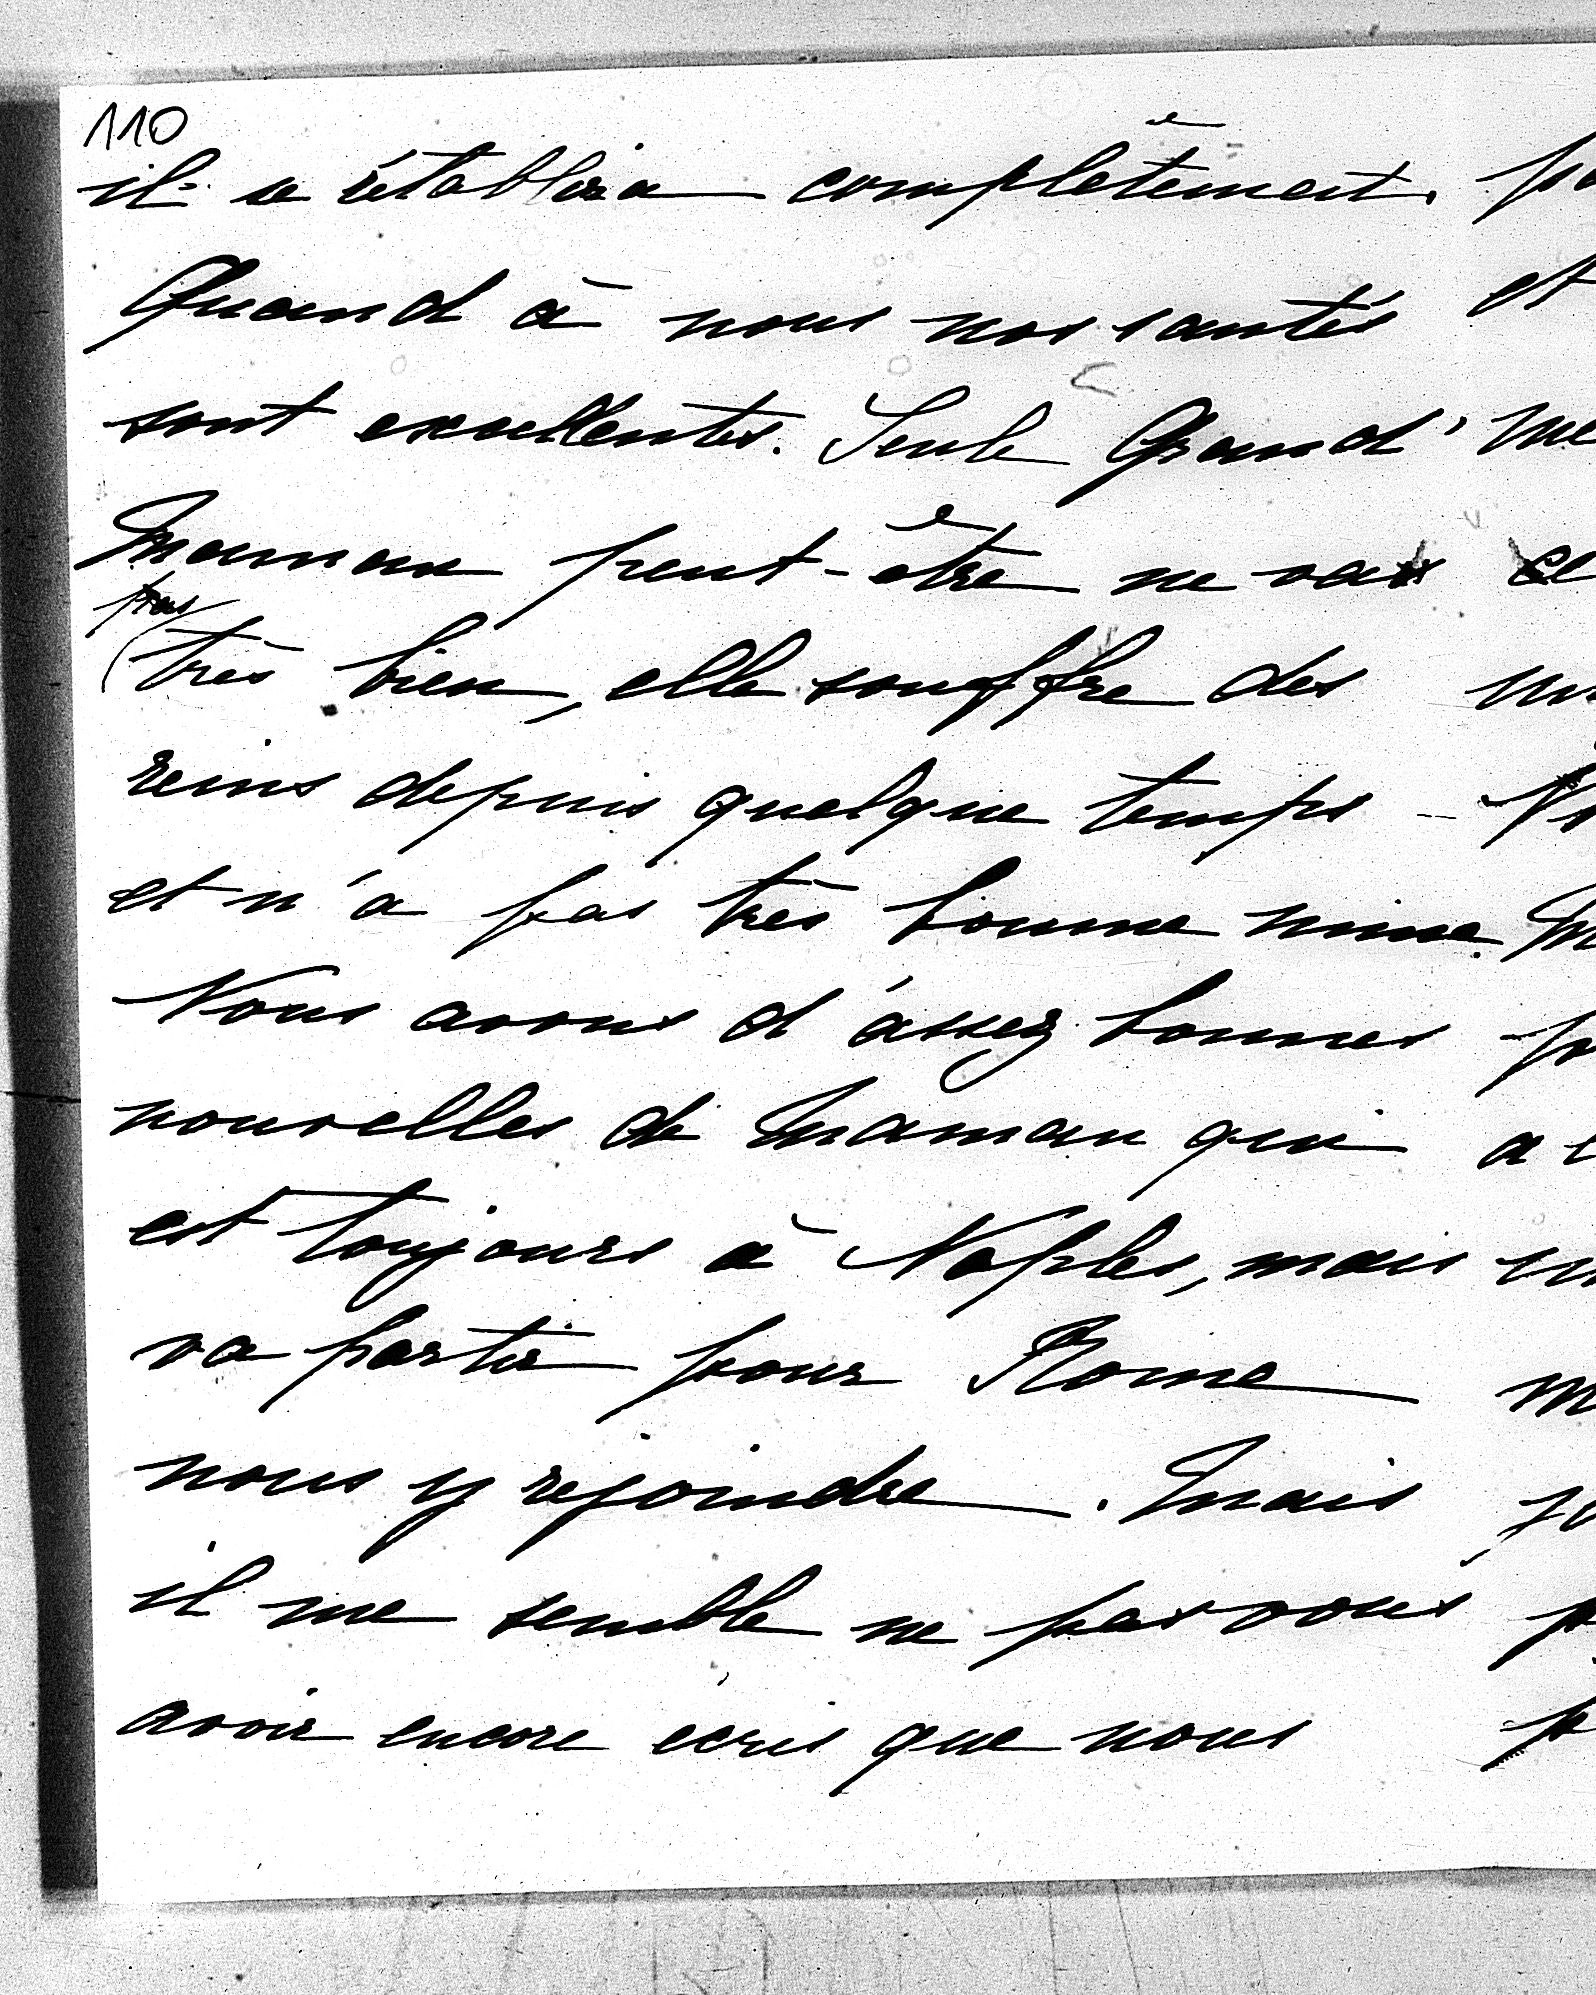 110
il se rétablira complètement.
Quand à nous nos santés et
sont excellentes. Seule Grand'
Maman peut-être ne va
pas
très bien, elle souffre des
reins depuis quelque temps –
et n'a pas très bonne mine.
Nous avons d'assez bonnes
nouvelles de Maman qui a
est toujours à Naples, mais
va partir pour Rome
nous y rejoindre. Mais
il me semble ne pas vous
avoir encore écris que nous